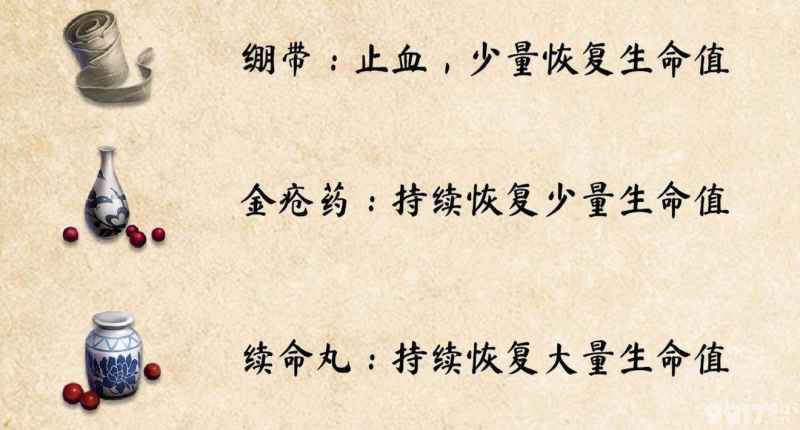 绷带：止血，少量恢复生命值
金疮药：持续恢复少量生命值
续命丸：持续恢复大量生命值